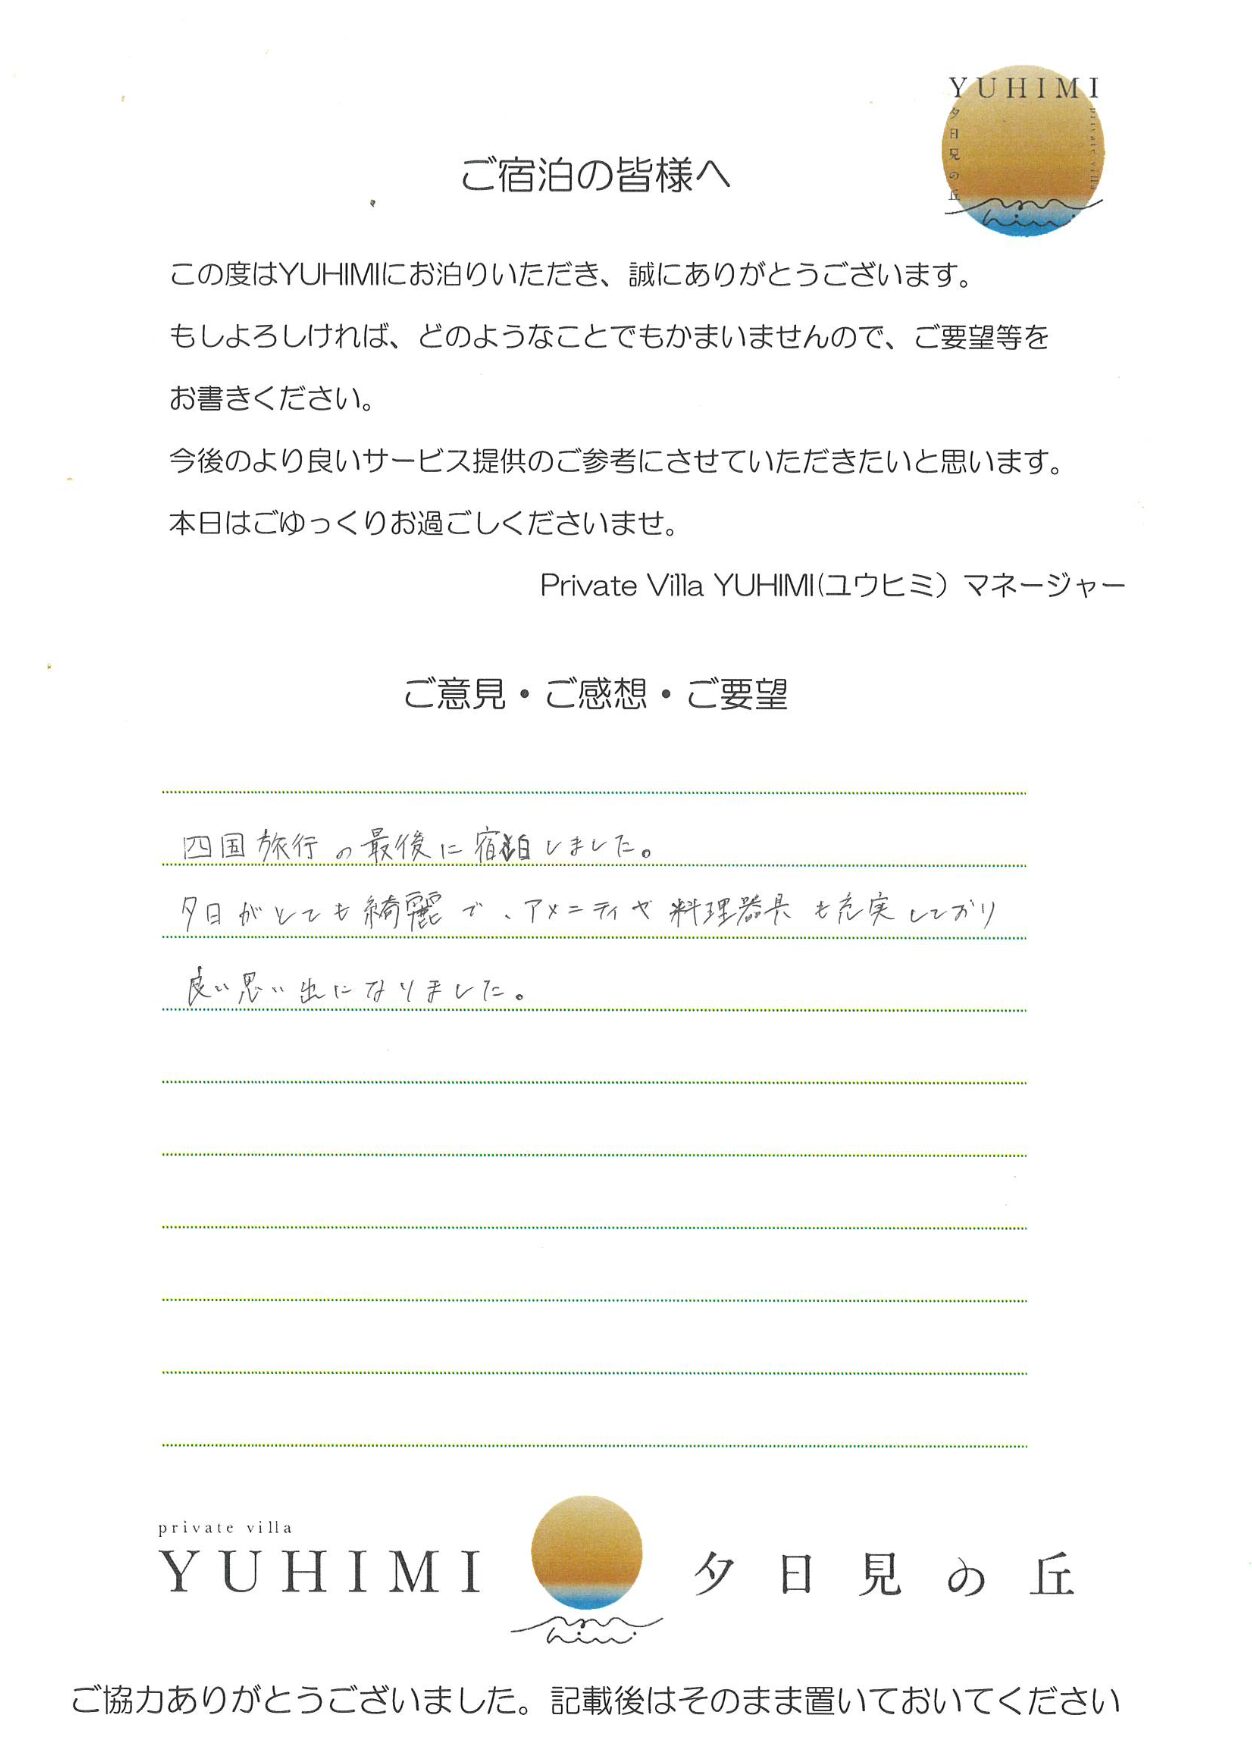 YUHIMI
夕日見の丘
private villa
ご宿泊の皆様へ
この度はYUHIMIにお泊りいただき、誠にありがとうございます。
もしよろしければ、どのようなことでもかまいませんので、ご要望等を
お書きください。
今後のより良いサービス提供のご参考にさせていただきたいと思います。
本日はごゆっくりお過ごしくださいませ。
Private Villa YUHIMI(ユウヒミ）マネージャー
ご意見・ご感想・ご要望
四国旅行の最後に宿泊しました。
夕日がとても綺麗で、アメニティや料理器具も充実しており
良い思い出になりました。
private villa
YUHIMI 夕日見の丘
ご協力ありがとうございました。記載後はそのまま置いておいてください